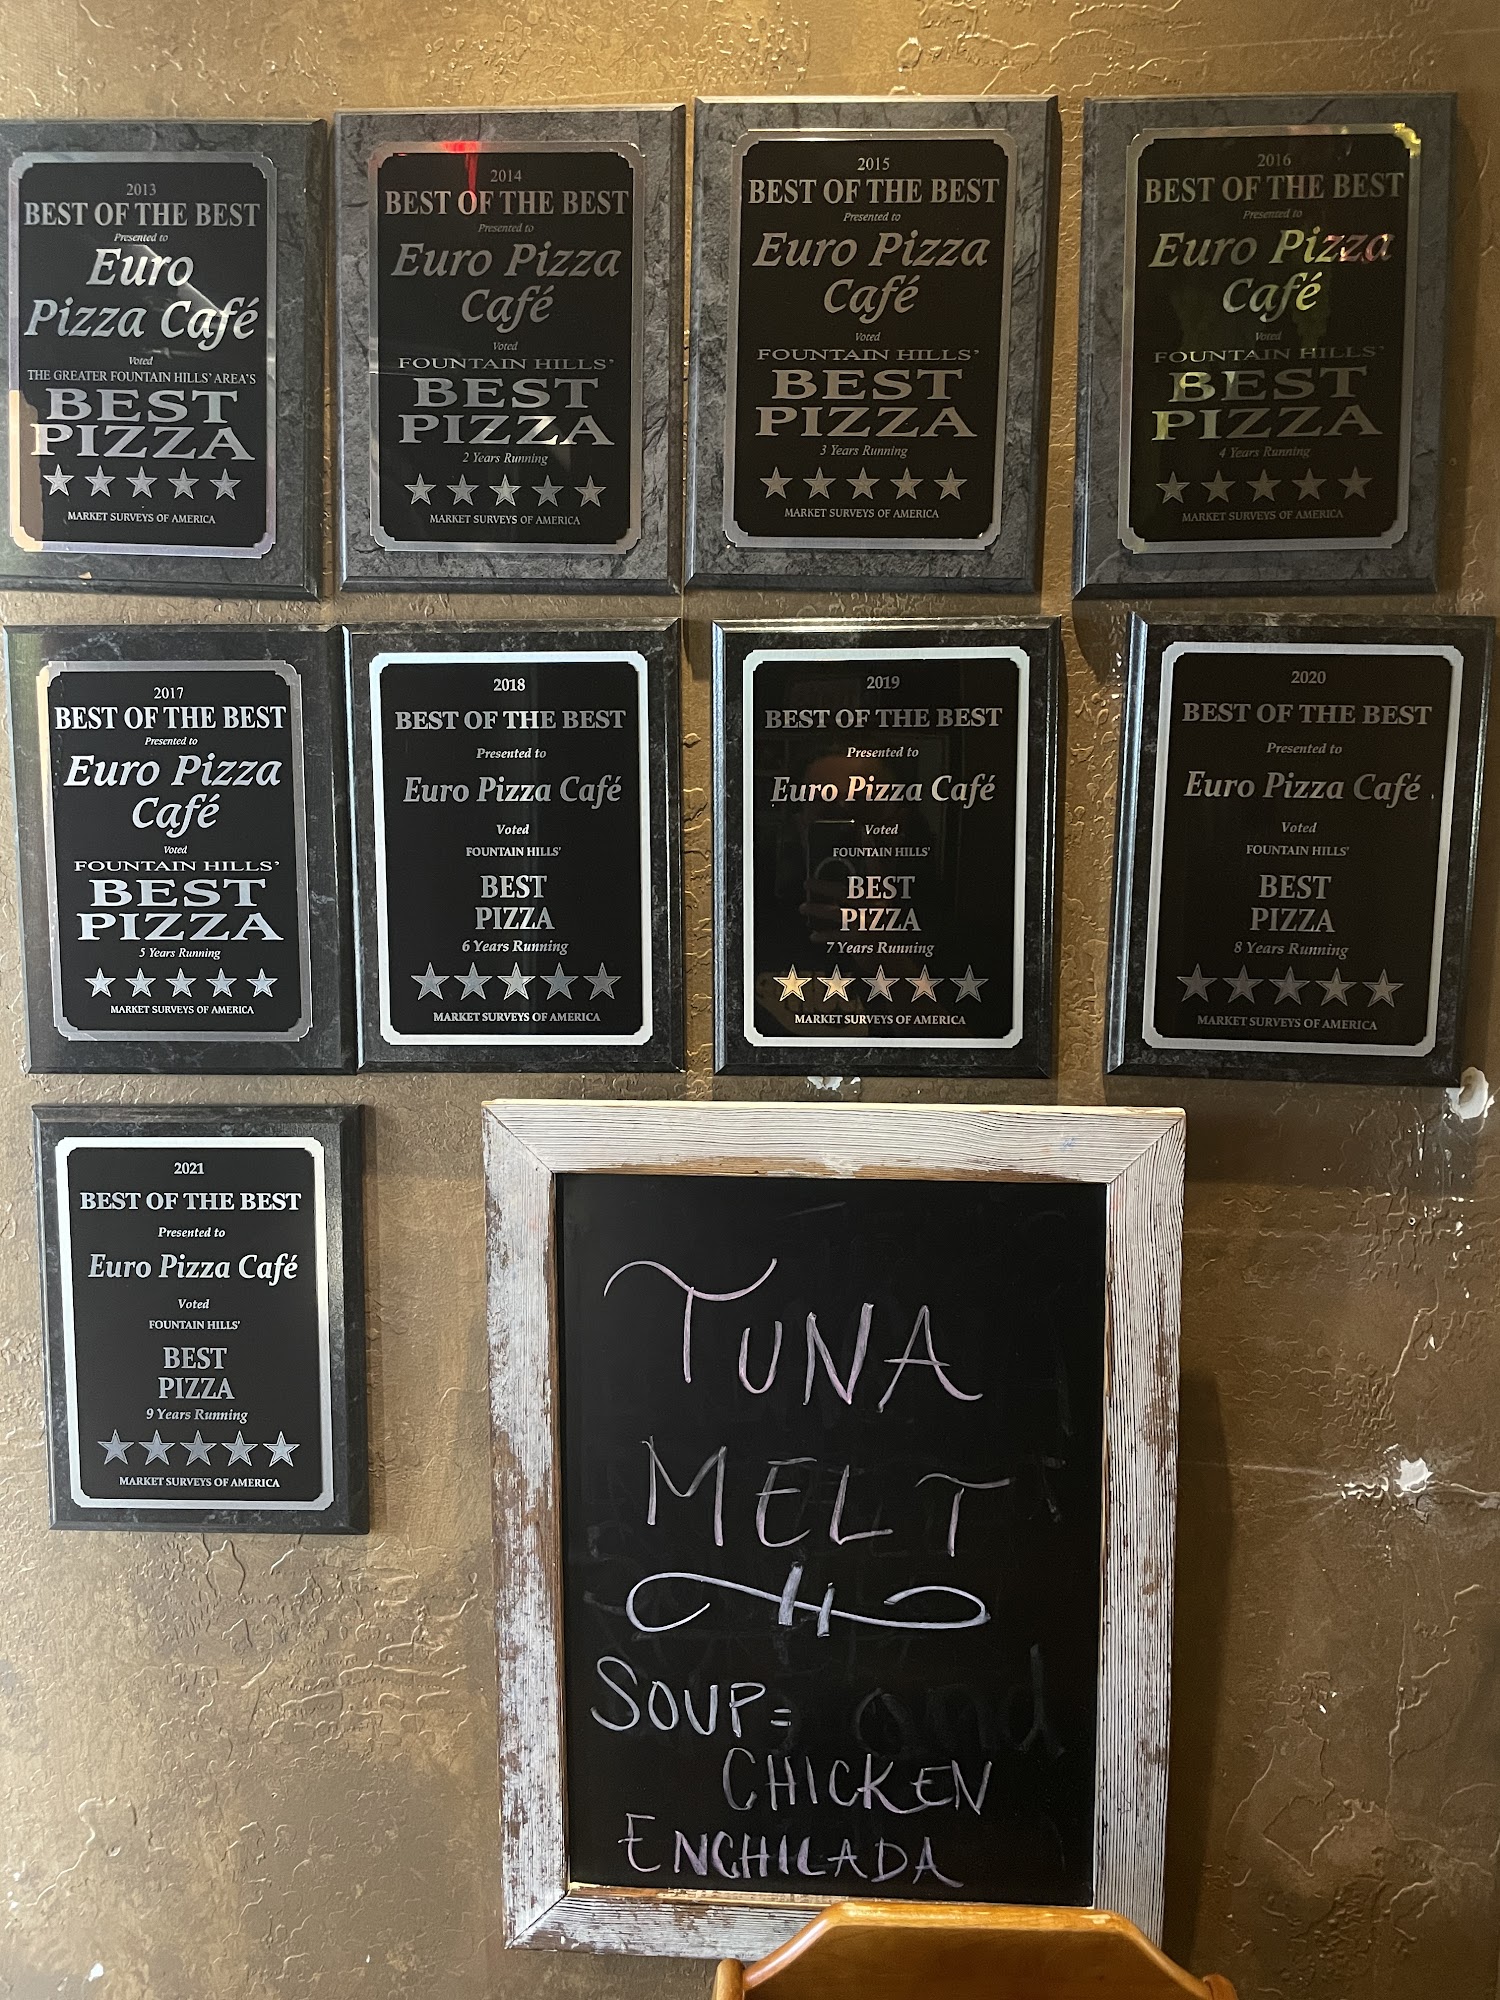 2013
BEST OF THE BEST
Presented to
Euro
Pizza Café
Voted
THE GREATER FOUNTAIN HILLS' AREA'S
BEST
PIZZA
MARKET SURVEYS OF AMERICA
2014
BEST OF THE BEST
Presented to
Euro Pizza
Café
Voted
FOUNTAIN HILLS'
BEST
PIZZA
2 Years Running
MARKET SURVEYS OF AMERICA
2015
BEST OF THE BEST
Presented to
Euro Pizza
Café
Voted
FOUNTAIN HILLS'
BEST
PIZZA
3 Years Running
MARKET SURVEYS OF AMERICA
2016
BEST OF THE BEST
Presented to
Euro Pizza
Café
Voted
FOUNTAIN HILLS'
BEST
PIZZA
4 Years Running
MARKET SURVEYS OF AMERICA
2017
BEST OF THE BEST
Presented to
Euro Pizza
Café
Voted
FOUNTAIN HILLS'
BEST
PIZZA
5 Years Running
MARKET SURVEYS OF AMERICA
2018
BEST OF THE BEST
Presented to
Euro Pizza Café
Voted
FOUNTAIN HILLS'
BEST
PIZZA
6 Years Running
MARKET SURVEYS OF AMERICA
2019
BEST OF THE BEST
Presented to
Euro Pizza Café
Voted
FOUNTAIN HILLS'
BEST
PIZZA
7 Years Running
MARKET SURVEYS OF AMERICA
2020
BEST OF THE BEST
Presented to
Euro Pizza Café
Voted
FOUNTAIN HILLS'
BEST
PIZZA
8 Years Running
MARKET SURVEYS OF AMERICA
2021
BEST OF THE BEST
Presented to
Euro Pizza Café
Voted
FOUNTAIN HILLS'
BEST
PIZZA
9 Years Running
MARKET SURVEYS OF AMERICA
TUNA
MELT
SOUP=
CHICKEN
ENCHILADA